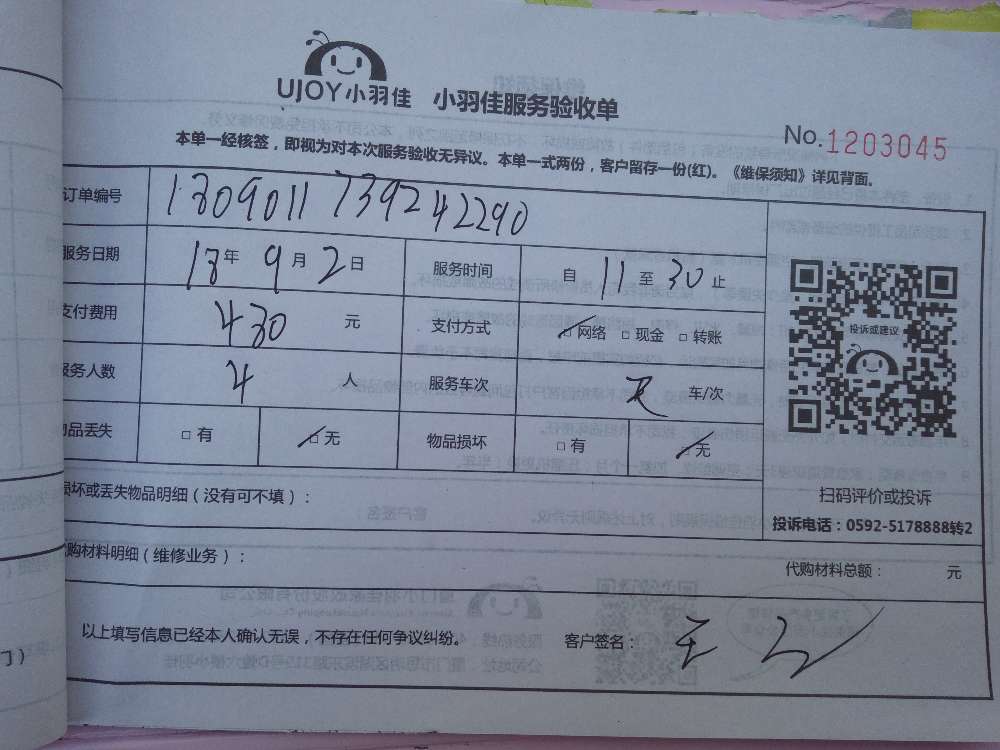 UJOY小羽佳 小羽佳服务验收单
No.1203045
本单一经核签，即视为对本次服务验收无异议。本单一式两份，客户留存一份(红)。《维保须知》详见背面。
订单编号 1809011739242290
服务日期 18年9月2日 服务时间 自11至30止
支付费用 430元 支付方式 □网络 □现金 □转账
服务人数 4人 服务车次 车/次
物品丢失 □有 □无 物品损坏 □有 □无
投诉或建议
扫码评价或投诉
投诉电话：0592-5178888转2
损坏或丢失物品明细（没有可不填）：
代购材料明细（维修业务）： 代购材料总额： 元
以上填写信息已经本人确认无误，不存在任何争议纠纷。 客户签名：